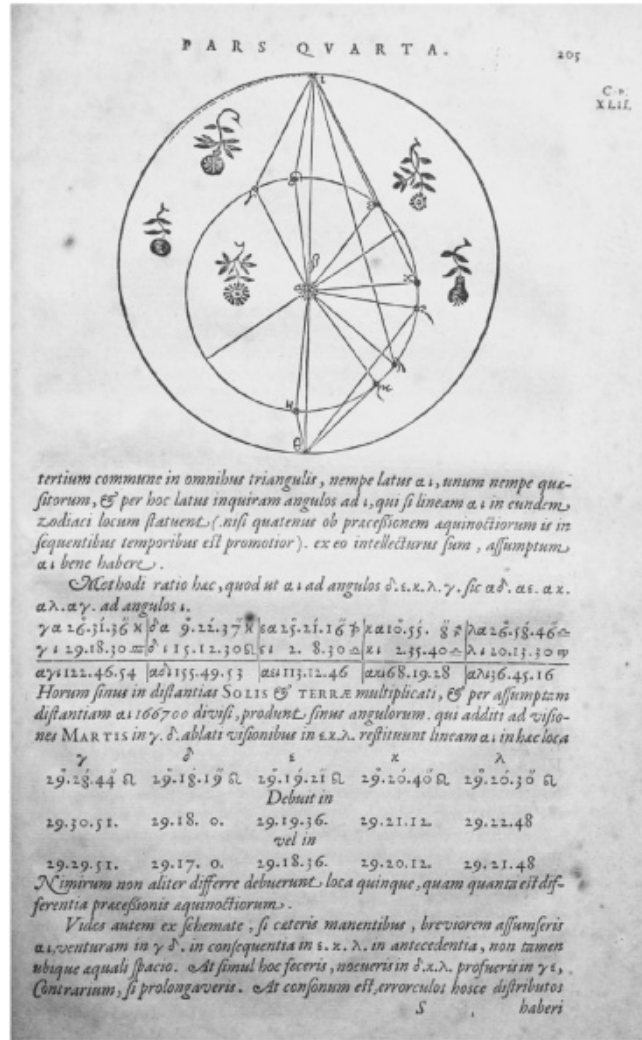 PARS QVARTA.
205
CAP.
XLII.
ι
β
κ
θ
tertium commune in omnibus triangulis, nempe latus αι, unum nempe quæ-
sitorum, & per hoc latus inquiram angulos ad ι, qui si lineam αι in eundem
zodiaci locum statuent (nisi quatenus ob præcessionem æquinoctiorum is in
sequentibus temporibus est promotior). ex eo intellecturus sum, assumptum
αι bene habere.
Methodi ratio hæc, quod ut αι ad angulos δ.ε.κ.λ.γ. sic αδ. αε. ακ.
αλ.αγ. ad angulos ι.
γα 26.31.36 ♓ | δα 9.22.37 ♓ | εα 25.21.16 ♑ | κα 10.55. 8 ♐ | λα 26.58.46 ♎
γι 29.18.30 ♒ | δι 15.12.30 ♌ | ει 2. 8.30 ♎ | κι 2.35.40 ♎ | λι 20.13.30 ♍
αγι 122.46.54 | αδι 155.49.53 | αει 113.12.46 | ακι 68.19.28 | αλι 36.45.16
Horum sinus in distantias SOLIS & TERRÆ multiplicati, & per assumptam
distantiam αι 166700 divisi, produnt sinus angulorum. qui additi ad visio-
nes MARTIS in γ. δ. ablati visionibus in ε.κ.λ. restituunt lineam αι in hæc loca
γ δ ε κ λ
29.28.44 ♌ 29.18.19 ♌ 29.19.21 ♌ 29.20.40 ♌ 29.20.30 ♌
Debuit in
29.30.51. 29.18. 0. 29.19.36. 29.21.12. 29.22.48
vel in
29.29.51. 29.17. 0. 29.18.36. 29.20.12. 29.21.48
Nimirum non aliter differre debuerunt loca quinque, quam quanta est dif-
ferentia præcessionis æquinoctiorum.
Vides autem ex schemate, si cæteris manentibus, breviorem assumseris
αι, venturam in γ δ. in consequentia in ε. κ. λ. in antecedentia, non tamen
ubique æquali spacio. At simul hoc feceris, nocueris in δ.κ.λ. profueris in γε,
Contrarium, si prolongaveris. At consonum est, errorculos hosce distributos
S haberi